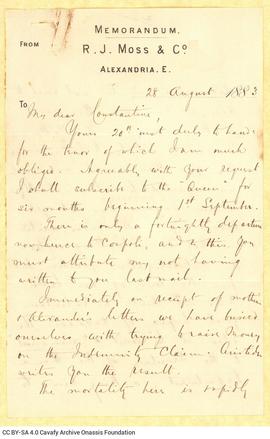 MEMORANDUM.
FROM
R. J. MOSS & Co.
ALEXANDRIA. E.
28 August 1883
To
My dear Constantine,
Yours 20th inst duly to hand
for the tenor of which I am much
obliged. Agreeably with your request
I shall subscribe to the "Queen" for
six months beginning 1st September.
There is only a fortnightly departure
now, hence to Conple, and to this you
must attribute my not having
written to you last mail.
Immediately on receipt of mother
& Alexander's letters we have busied
ourselves with trying to raise money
on the Indemnity Claim: Aristides
writes you the result.
The mortality here is rapidly
CC BY-SA 4.0 Cavafy Archive Onassis Foundation